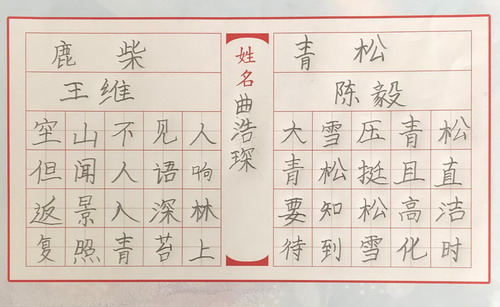 鹿柴
王维
空山不见人
但闻人语响
返景入深林
复照青苔上
姓名曲浩琛
青松
陈毅
大雪压青松
青松挺且直
要知松高洁
待到雪化时